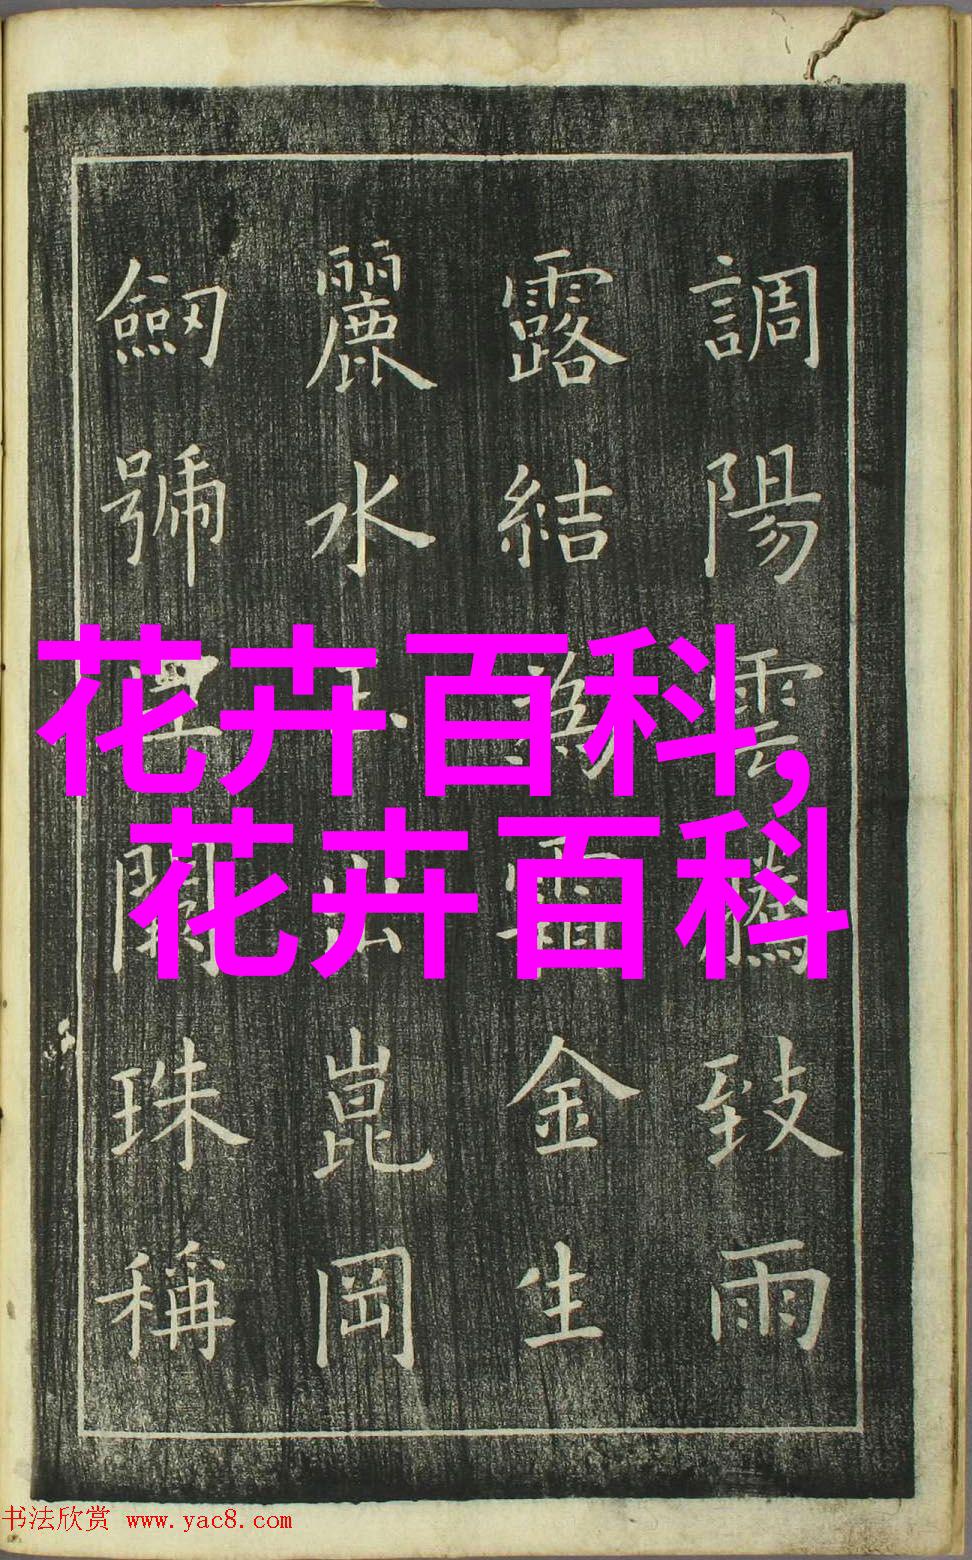 調陽雲騰致雨
露結為金生
麗水崑岡
劒號闕珠稱
花卉百科,
花卉百科
书法欣赏 www.yac8.com